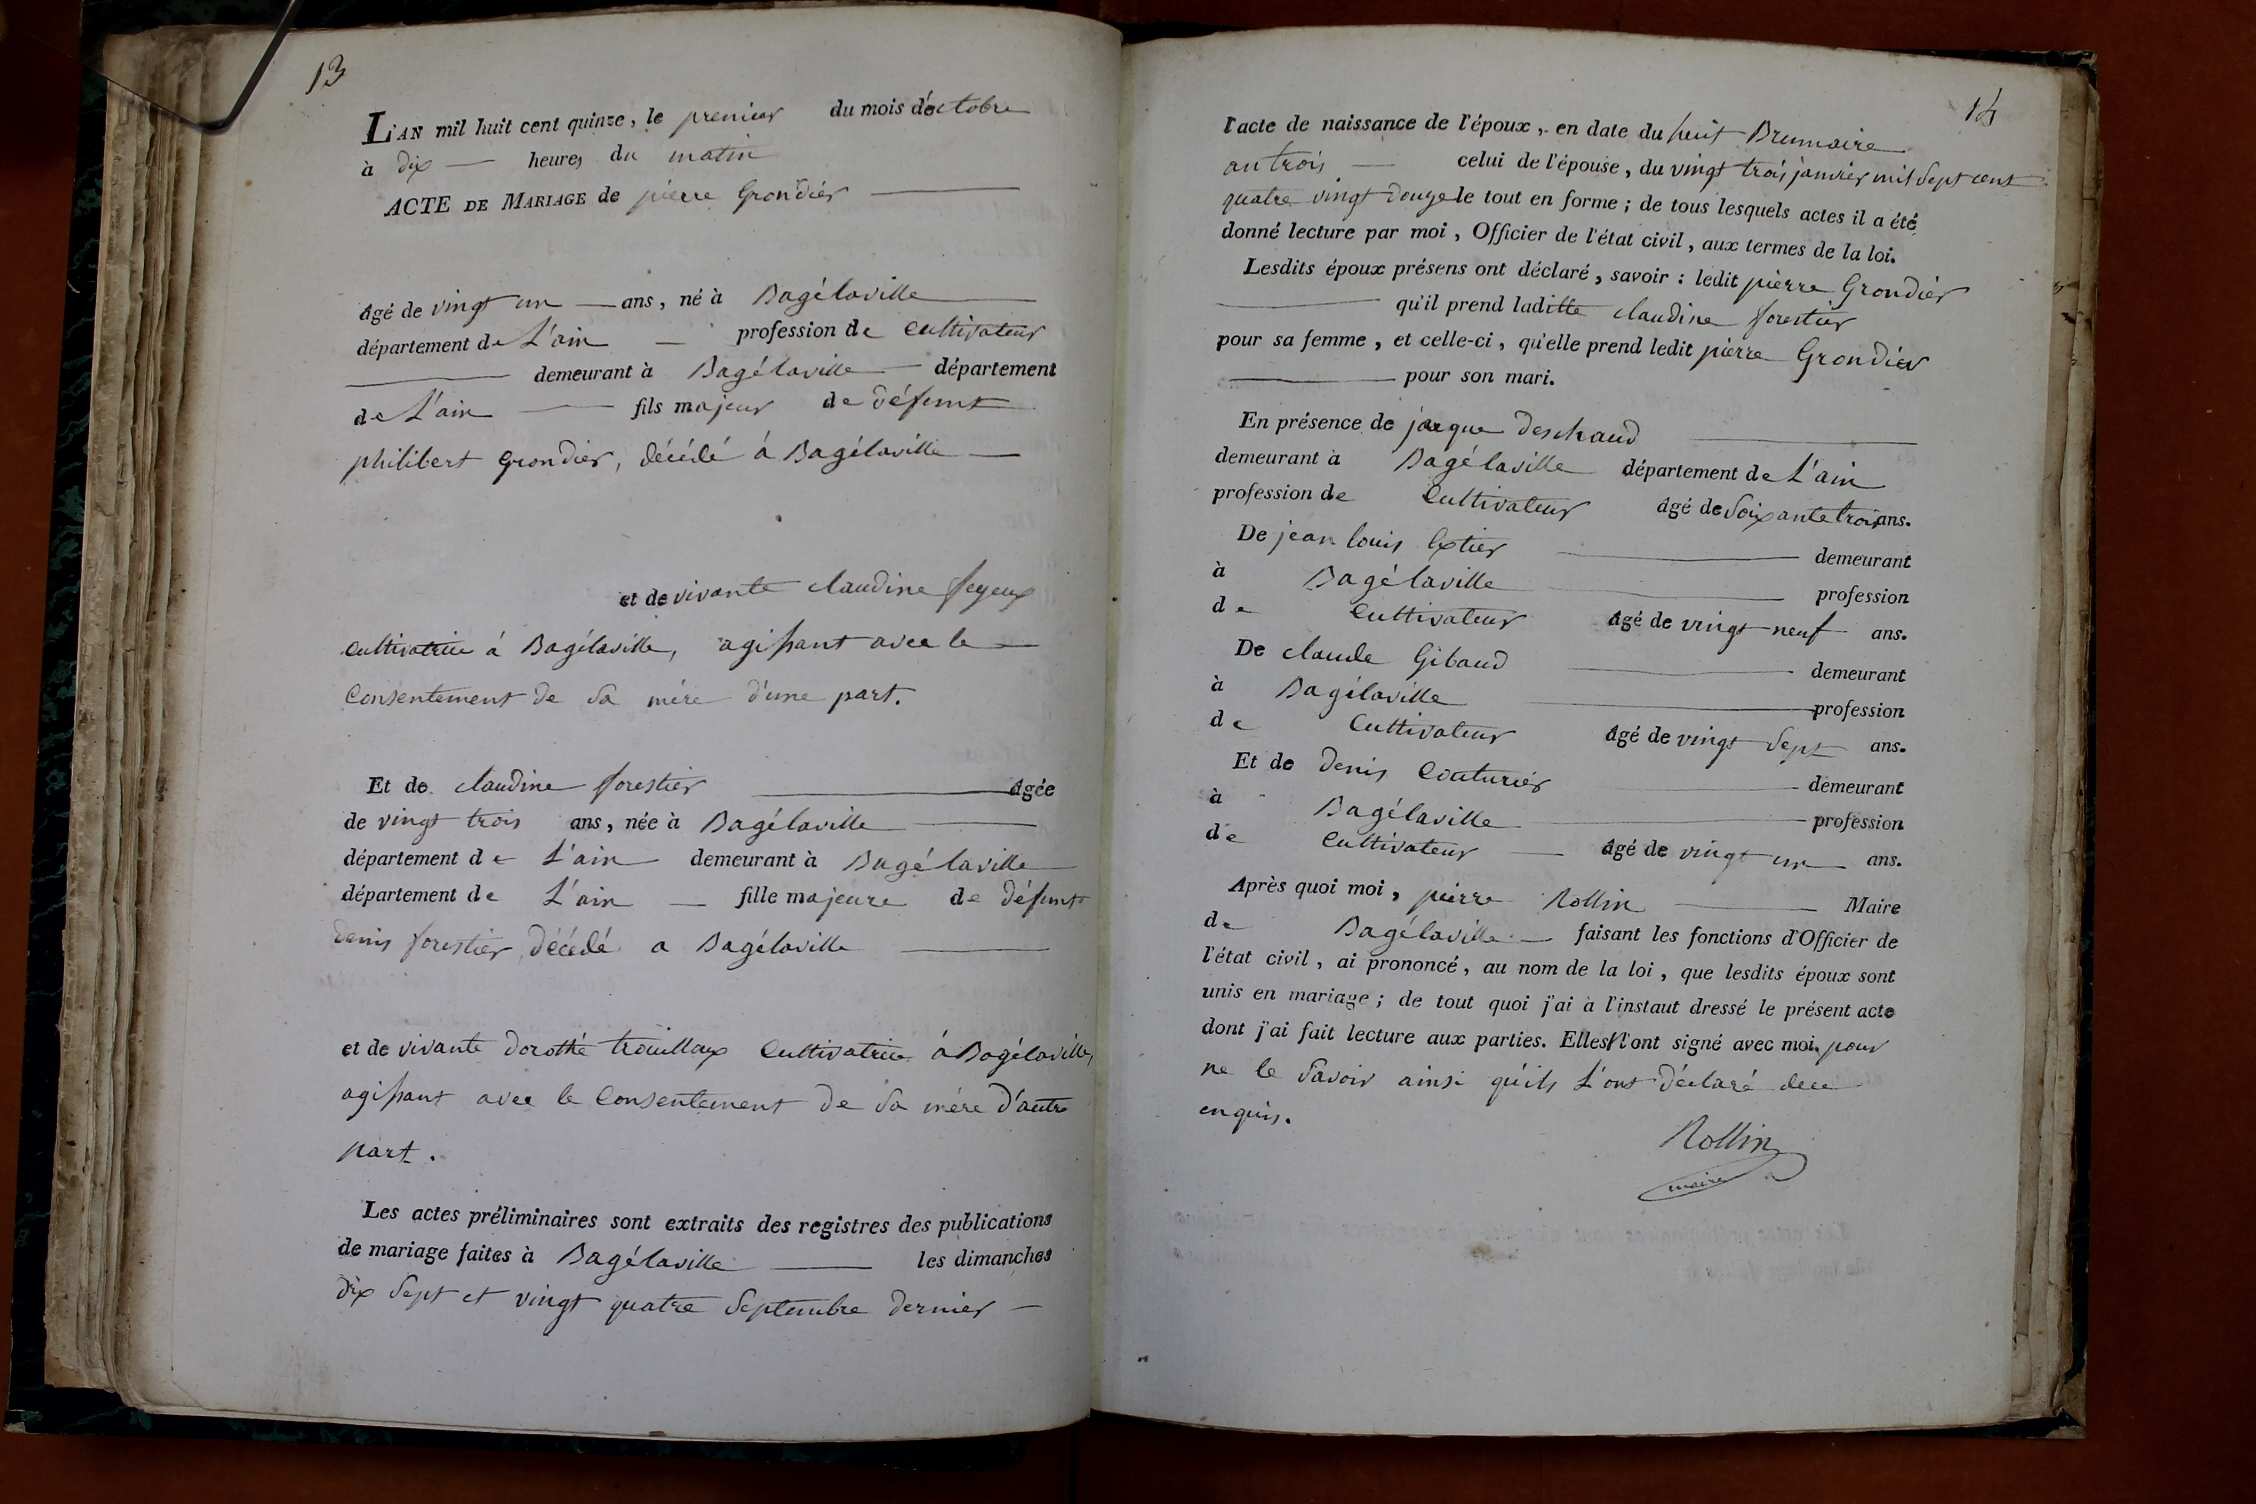 13
L'AN mil huit cent quinze, le premier du mois d'octobre
à dix — heures du matin
ACTE DE MARIAGE de pierre Grondier —
Agé de vingt un — ans, né à Bagélaville —
département de L'ain — profession de Cultivateur
— demeurant à Bagélaville — département
de L'ain — fils majeur de défunt
philibert Grondier, décédé á Bagélaville —
et de vivante claudine feyeux
Cultivatrice á Bagélaville, agissant avec le —
Consentement de sa mére d'une part.
Et de claudine forestier — Agée
de vingt trois ans, née à Bagélaville —
département de L'ain demeurant à Bagélaville
département de L'ain — fille majeure de défunt
denis forestier, décédé a Bagélaville —
et de vivante dorothé trouilloux Cultivatrice á Bagélaville,
agissant avec le Consentement de sa mére d'autre
part.
Les actes préliminaires sont extraits des registres des publications
de mariage faites à Bagélaville — les dimanches
dix sept et vingt quatre Septembre dernier —
14
l'acte de naissance de l'époux, en date du huit Brumaire
an trois — celui de l'épouse, du vingt trois janvier mil sept cent
quatre vingt douze le tout en forme ; de tous lesquels actes il a été
donné lecture par moi, Officier de l'état civil, aux termes de la loi.
Lesdits époux présens ont déclaré, savoir : ledit pierre Grondier
— qu'il prend laditte claudine forestier
pour sa femme, et celle-ci, qu'elle prend ledit pierre Grondier
— pour son mari.
En présence de jacque deschaud —
demeurant à Bagélaville département de L'ain
profession de Cultivateur Agé de soixante trois ans.
De jean louis Extier — demeurant
à Bagélaville — profession
de Cultivateur Agé de vingt neuf ans.
De claude Gibaud — demeurant
à Bagélaville — profession
de Cultivateur Agé de vingt sept ans.
Et de denis Couturier — demeurant
à Bagélaville — profession
de Cultivateur — Agé de vingt un ans.
Après quoi moi, pierre Rollin — Maire
de Bagélaville — faisant les fonctions d'Officier de
l'état civil, ai prononcé, au nom de la loi, que lesdits époux sont
unis en mariage ; de tout quoi j'ai à l'instaut dressé le présent acte
dont j'ai fait lecture aux parties. Elles N'ont signé avec moi pour
ne le savoir ainsi qu'ils L'ont déclaré
enquis.
Rollin
maire